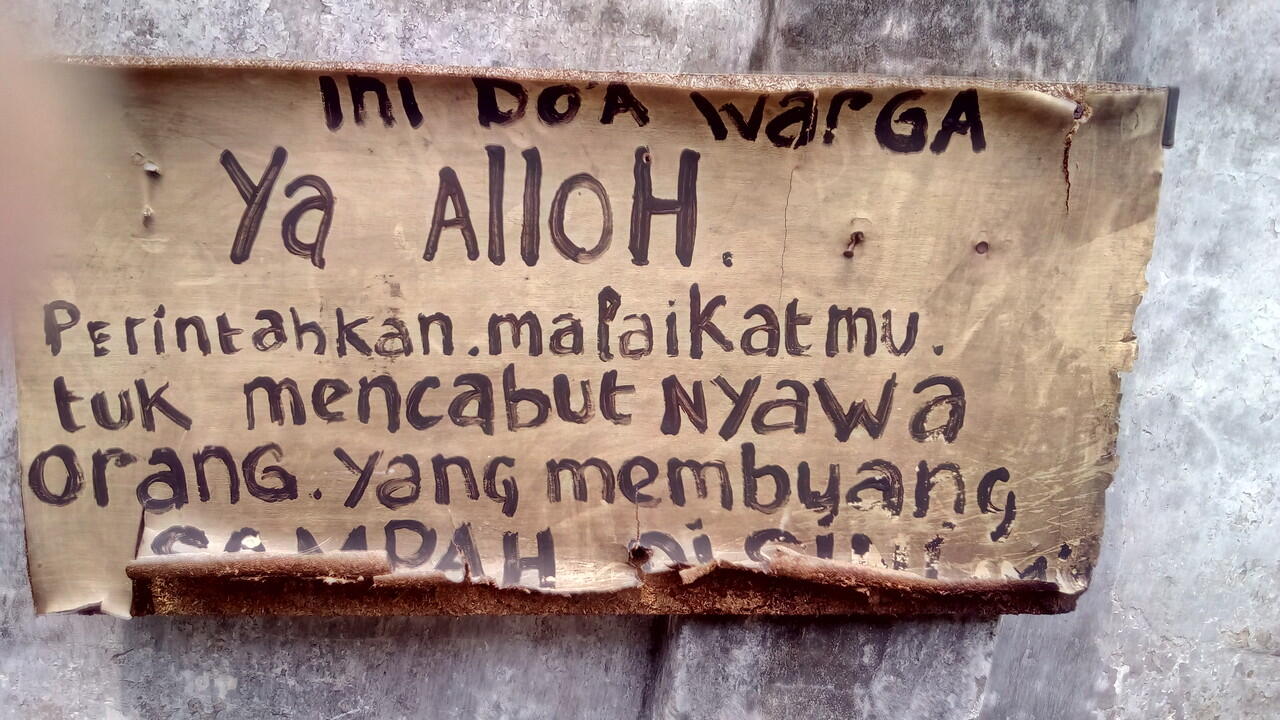 ini DO'A WarGA
Ya AlloH.
Perintahkan.malaikatmu.
tuk mencabut NYawa
OraNG.yang membuyang
SAMPAH Di SiNi